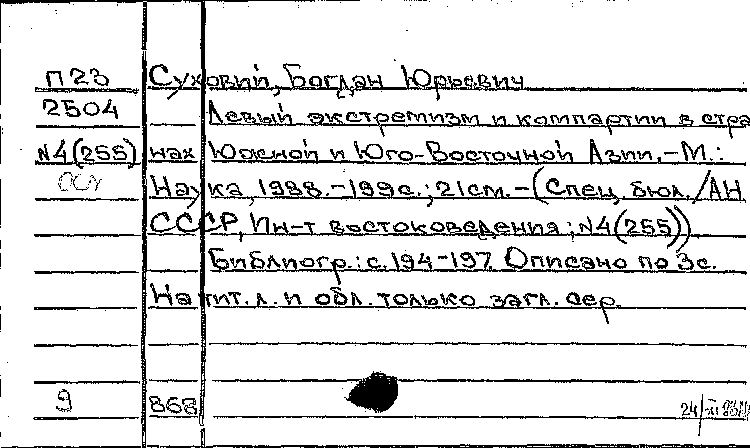 П23 Суховий, Богдан Юрьевич
2504 Левый экстремизм и компартии в стра
N4(255) нах Южной и Юго-Восточной Азии. -М.:
Наука, 1988.-199с.; 21см. -(Спец. бюл./АН
СССР, Ин-т востоковедения; N4(255)).
Библиогр.: с.194-197. Описано по 3с.
На тит. л. и обл. только загл. сер.
9 868 24/XI